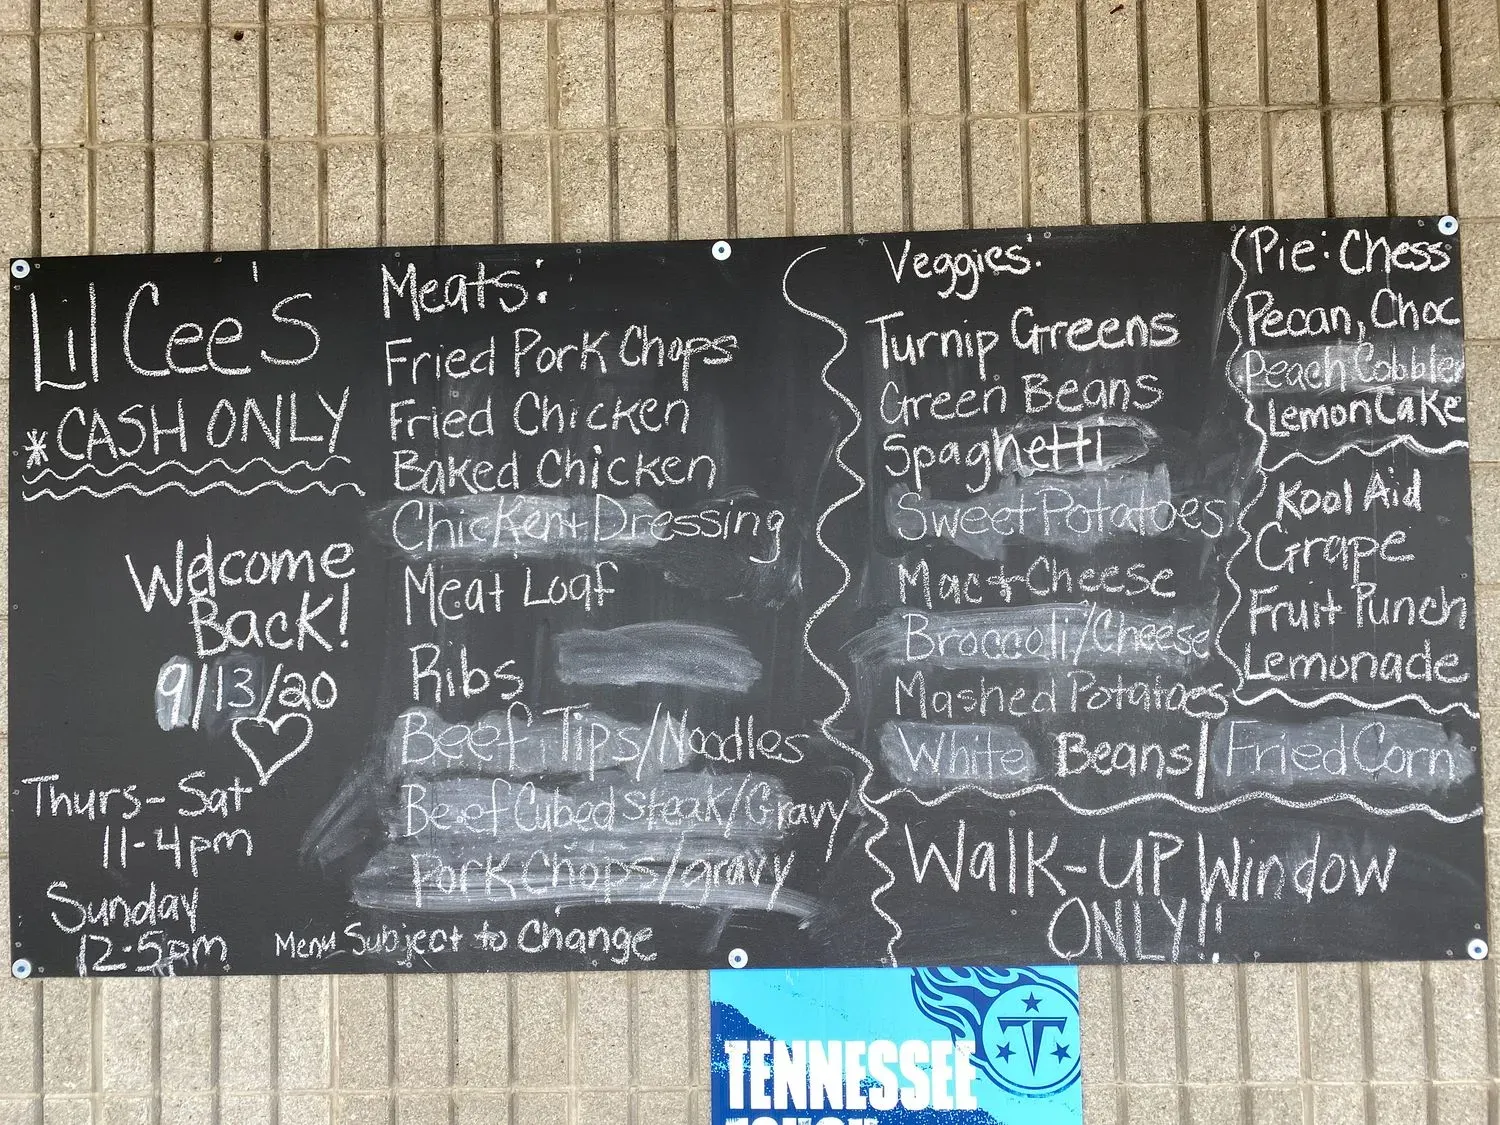 Lil Cee's
*CASH ONLY
Welcome
Back!
9/13/20
Thurs-Sat
11-4pm
Sunday
12-5pm
Meats:
Fried Pork Chops
Fried Chicken
Baked Chicken
Chicken+Dressing
Meat Loaf
Ribs
Beef Tips/Noodles
Beef Cubed steak/Gravy
Pork Chops/gravy
Menu Subject to Change
Veggies:
Turnip Greens
Green Beans
Spaghetti
Sweet Potatoes
Mac+Cheese
Broccoli/Cheese
Mashed Potatoes
White Beans/Fried Corn
Pie: Chess
Pecan, Choc
Peach Cobbler
Lemon Cake
Kool Aid
Grape
Fruit Punch
Lemonade
Walk-UP Window
ONLY!!
TENNESSEE
T